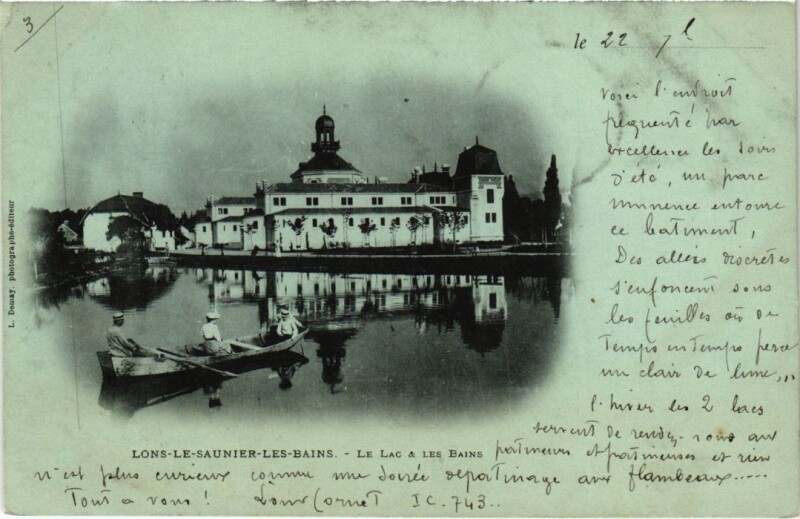 3
le 22 7b
Voici l'endroit
fréquenté par
excellence les soirs
d'été, un parc
immence entoure
ce batiment,
Des allées discrètes
s'enfoncent sous
les feuilles où de
Temps en Temps perce
un clair de lune,..
l'hiver les 2 lacs
servent de rendez-vous aux
patineurs et patineuses et rien
n'est plus curieux comme une soirée de patinage aux flambeaux.....
Tout a vous ! IC. 743..
LONS-LE-SAUNIER-LES-BAINS. - LE LAC & LES BAINS
L. Demay, photographe-éditeur